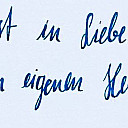 st in Liebe
n eigenen He